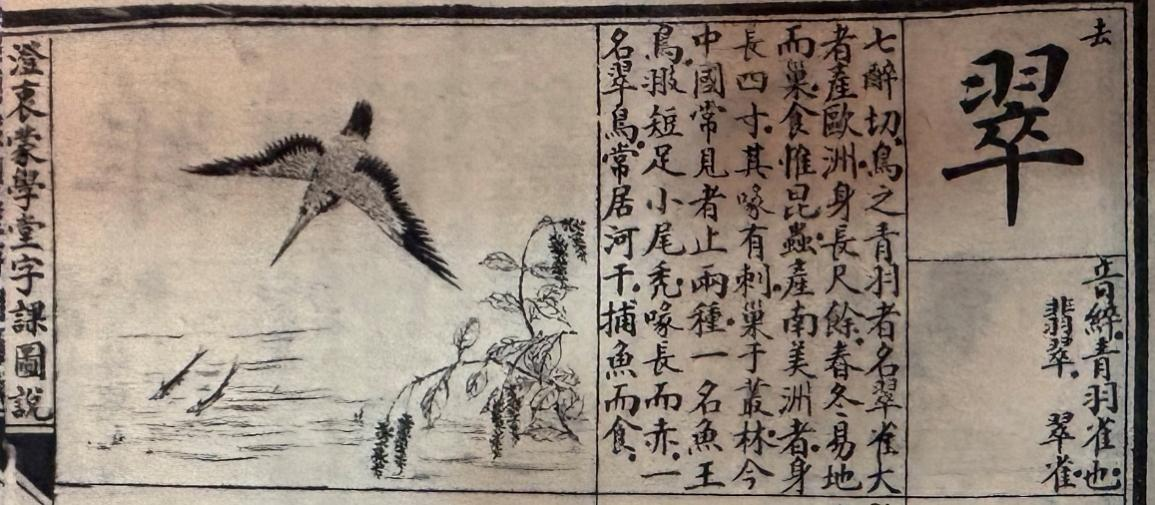 去
翠
音綷青羽雀也
翡翠
翠雀
七醉切鳥之青羽者名翠雀大
者產歐洲身長尺餘春冬易地
而巢食惟昆蟲產南美洲者身
長四寸其喙有刺巢于叢林今
中國常見者止兩種一名魚王
鳥翅短足小尾禿喙長而赤一
名翠鳥常居河干捕魚而食
澄衷蒙學堂字課圖說